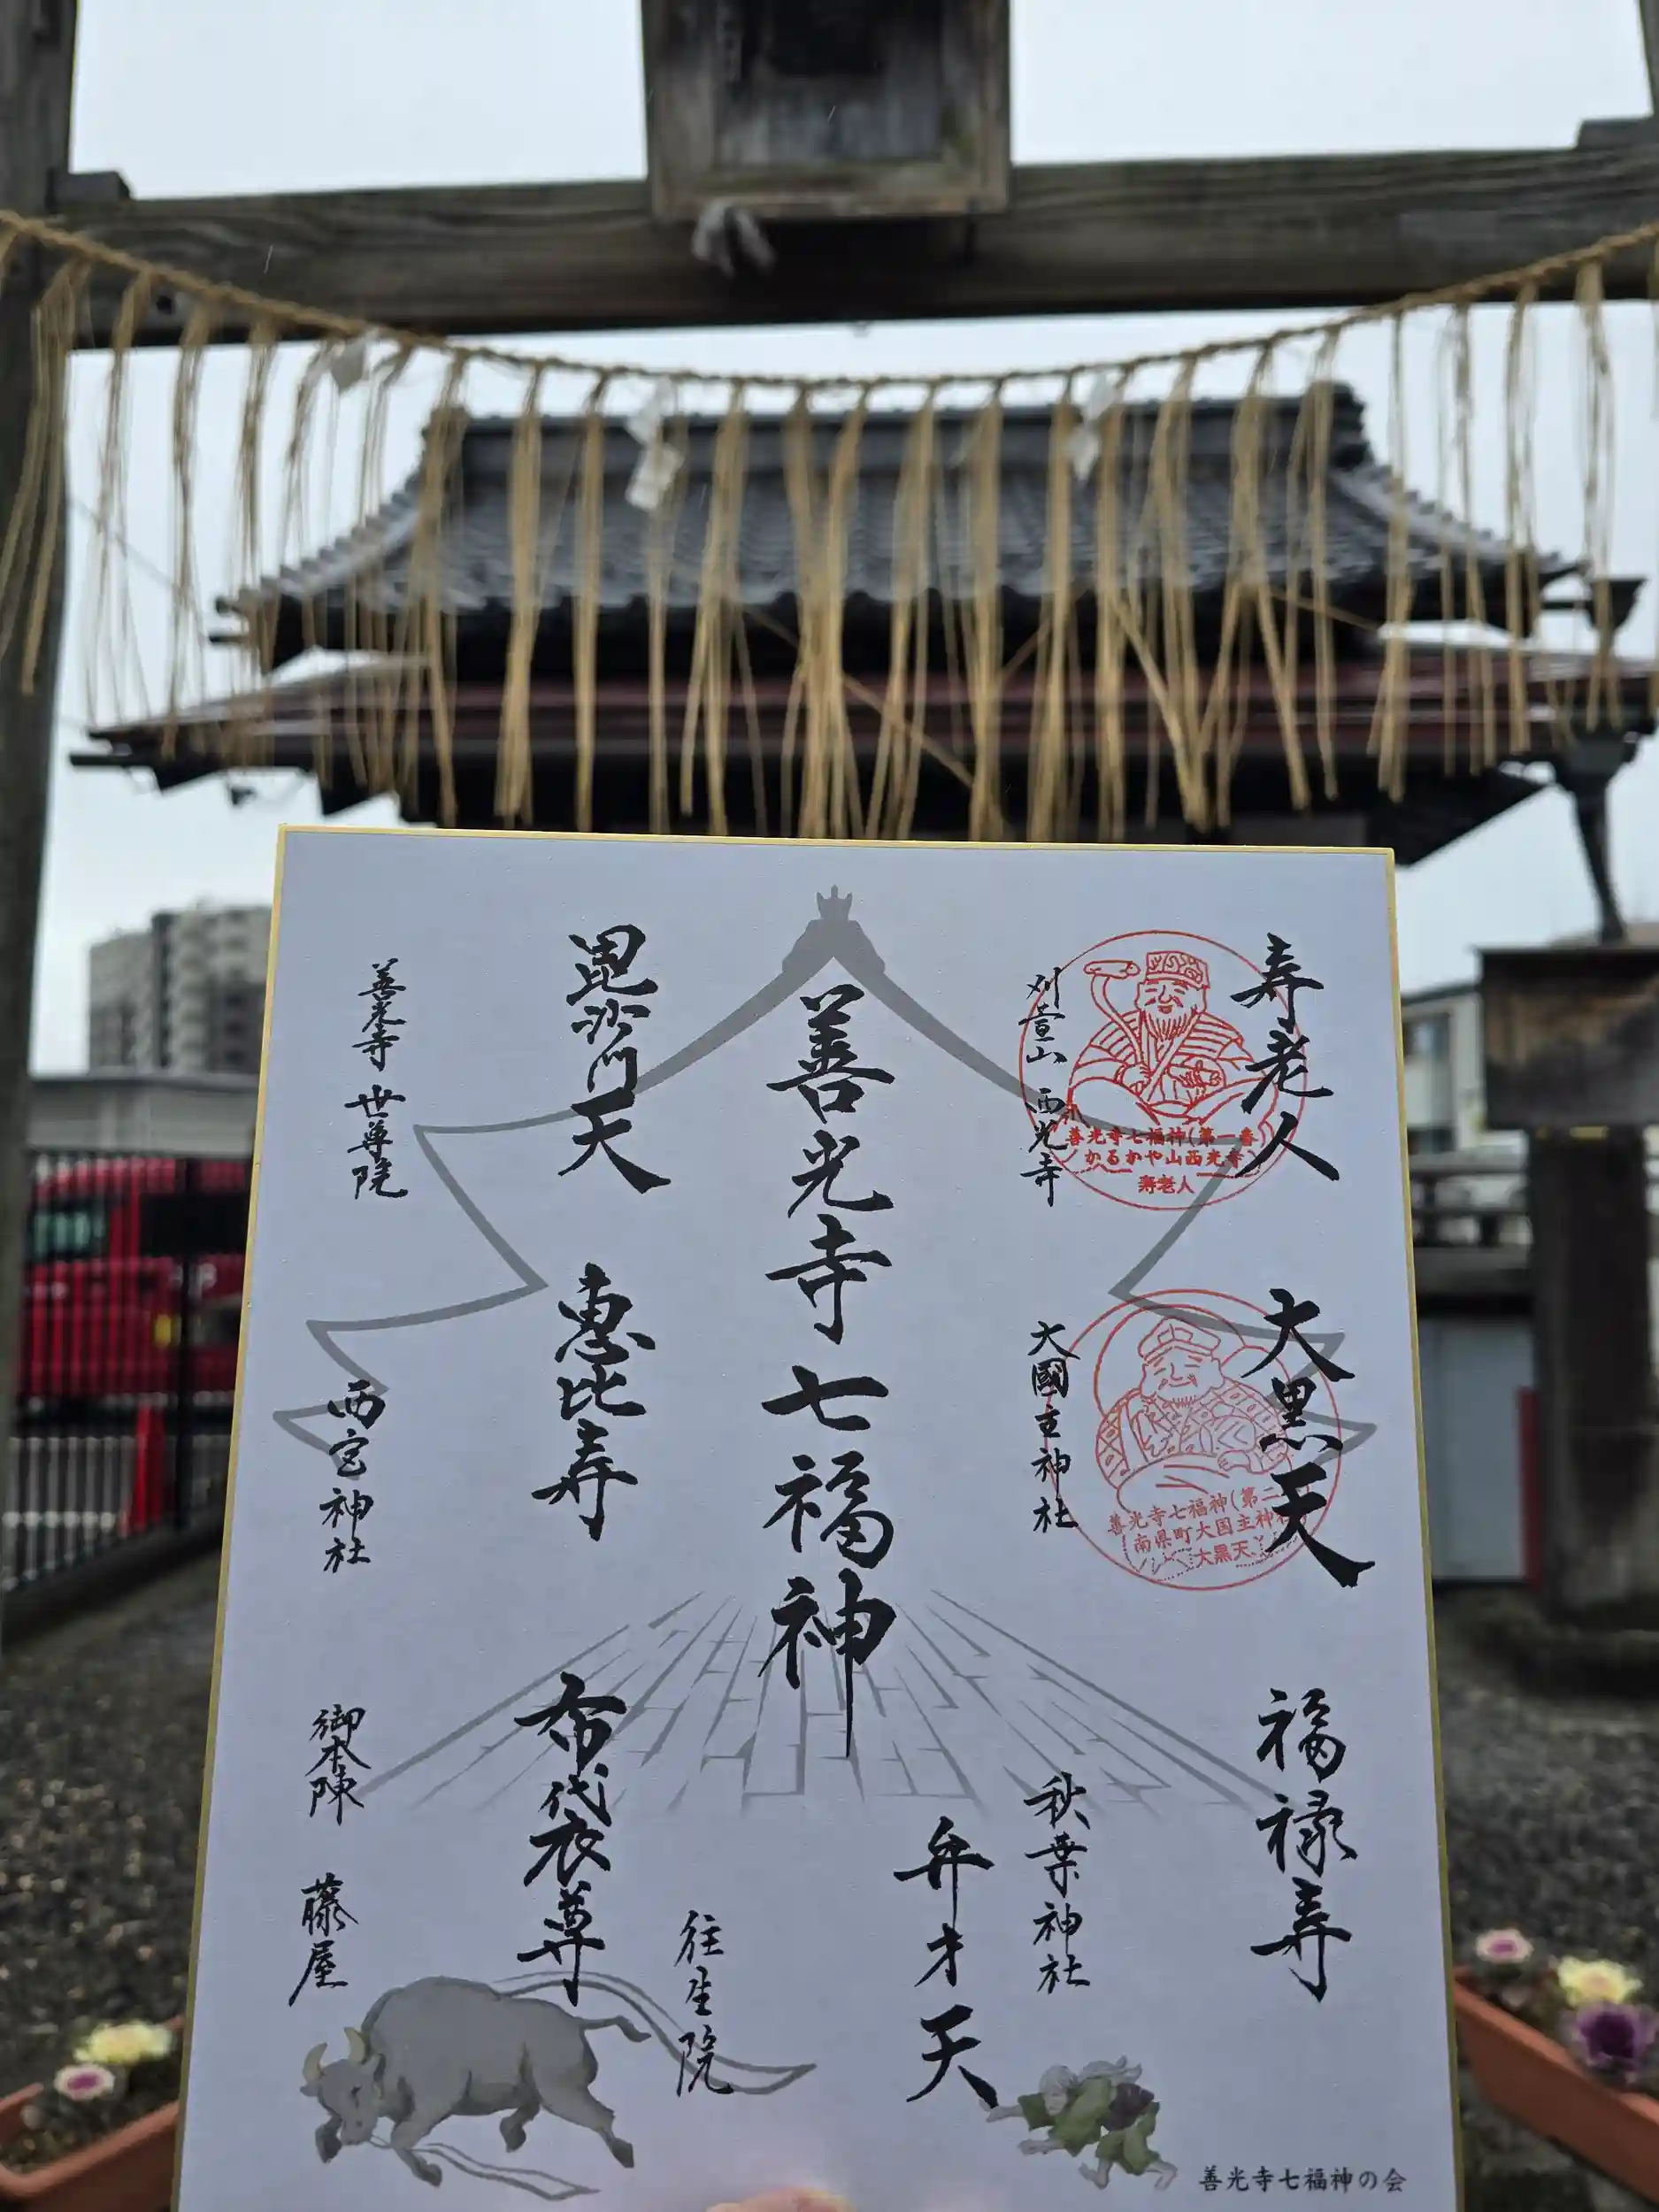 寿老人
刈萱山 西光寺
善光寺七福神(第一番)
かるかや山西光寺
寿老人
大黒天
大國主神社
善光寺七福神(第二
南県町大国主神社
大黒天
福禄寿
秋葉神社
弁才天
往生院
善光寺七福神
毘沙門天
善光寺 世尊院
恵比寿
西宮神社
布袋尊
御本陳 藤屋
善光寺七福神の会